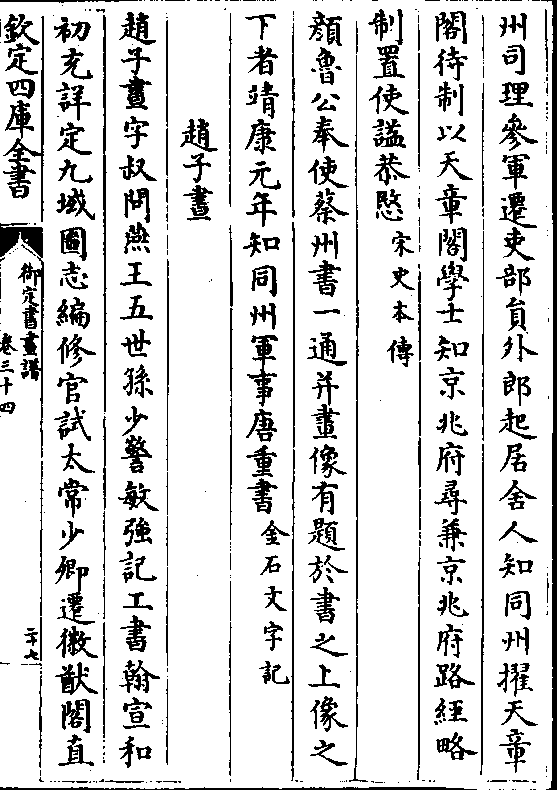 州司理參軍遷吏部員外郎起居舍人知同州擢天章
閣待制以天章閣學士知京兆府尋兼京兆府路經略
制置使謚恭愍宋史本傳
顔魯公奉使蔡州書一通并畫像有題於書之上像之
下者靖康元年知同州軍事唐重書金石文字記
趙子晝
趙子晝字叔問燕王五世孫少警敏強記工書翰宣和
初充詳定九域圖志編修官試太常少卿遷徽猷閣直
欽定四庫全書
御定書畫譜
卷三十四
二十七